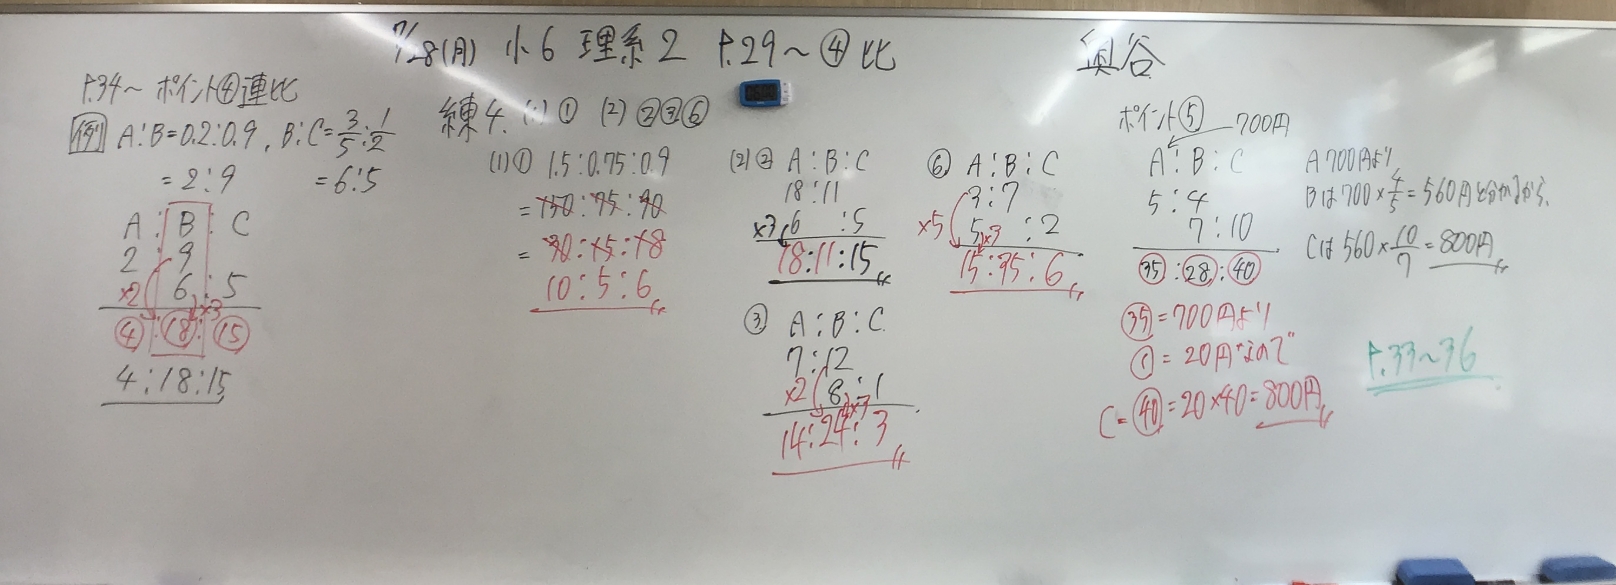 7/28(月) 小6 理系2 P.29～④比 奥谷
P.34～ ポイント④連比
例 A:B=0.2:0.9, B:C=3/5:1/2
=2:9 =6:5
A:B:C
2:9
×2 6:5 ×3
④:⑱:⑮
4:18:15
練4. (1)① (2)②③⑥
(1)① 1.5:0.75:0.9
=150:75:90
=30:15:18
10:5:6
(2)② A:B:C
18:11
×3 6:5
18:11:15
③ A:B:C
7:12
×2 8:1 ×3
14:24:3
⑥ A:B:C
3:7
×5 5:2 ×3
15:35:6
ポイント⑤
700円
A:B:C
5:4
7:10
㉟:㉘:㊵
㉟=700円より
①=20円なので
C=㊵=20×40=800円
A700円より
Bは700×4/5=560円と分かるから、
Cは560×10/7=800円
P.33～36